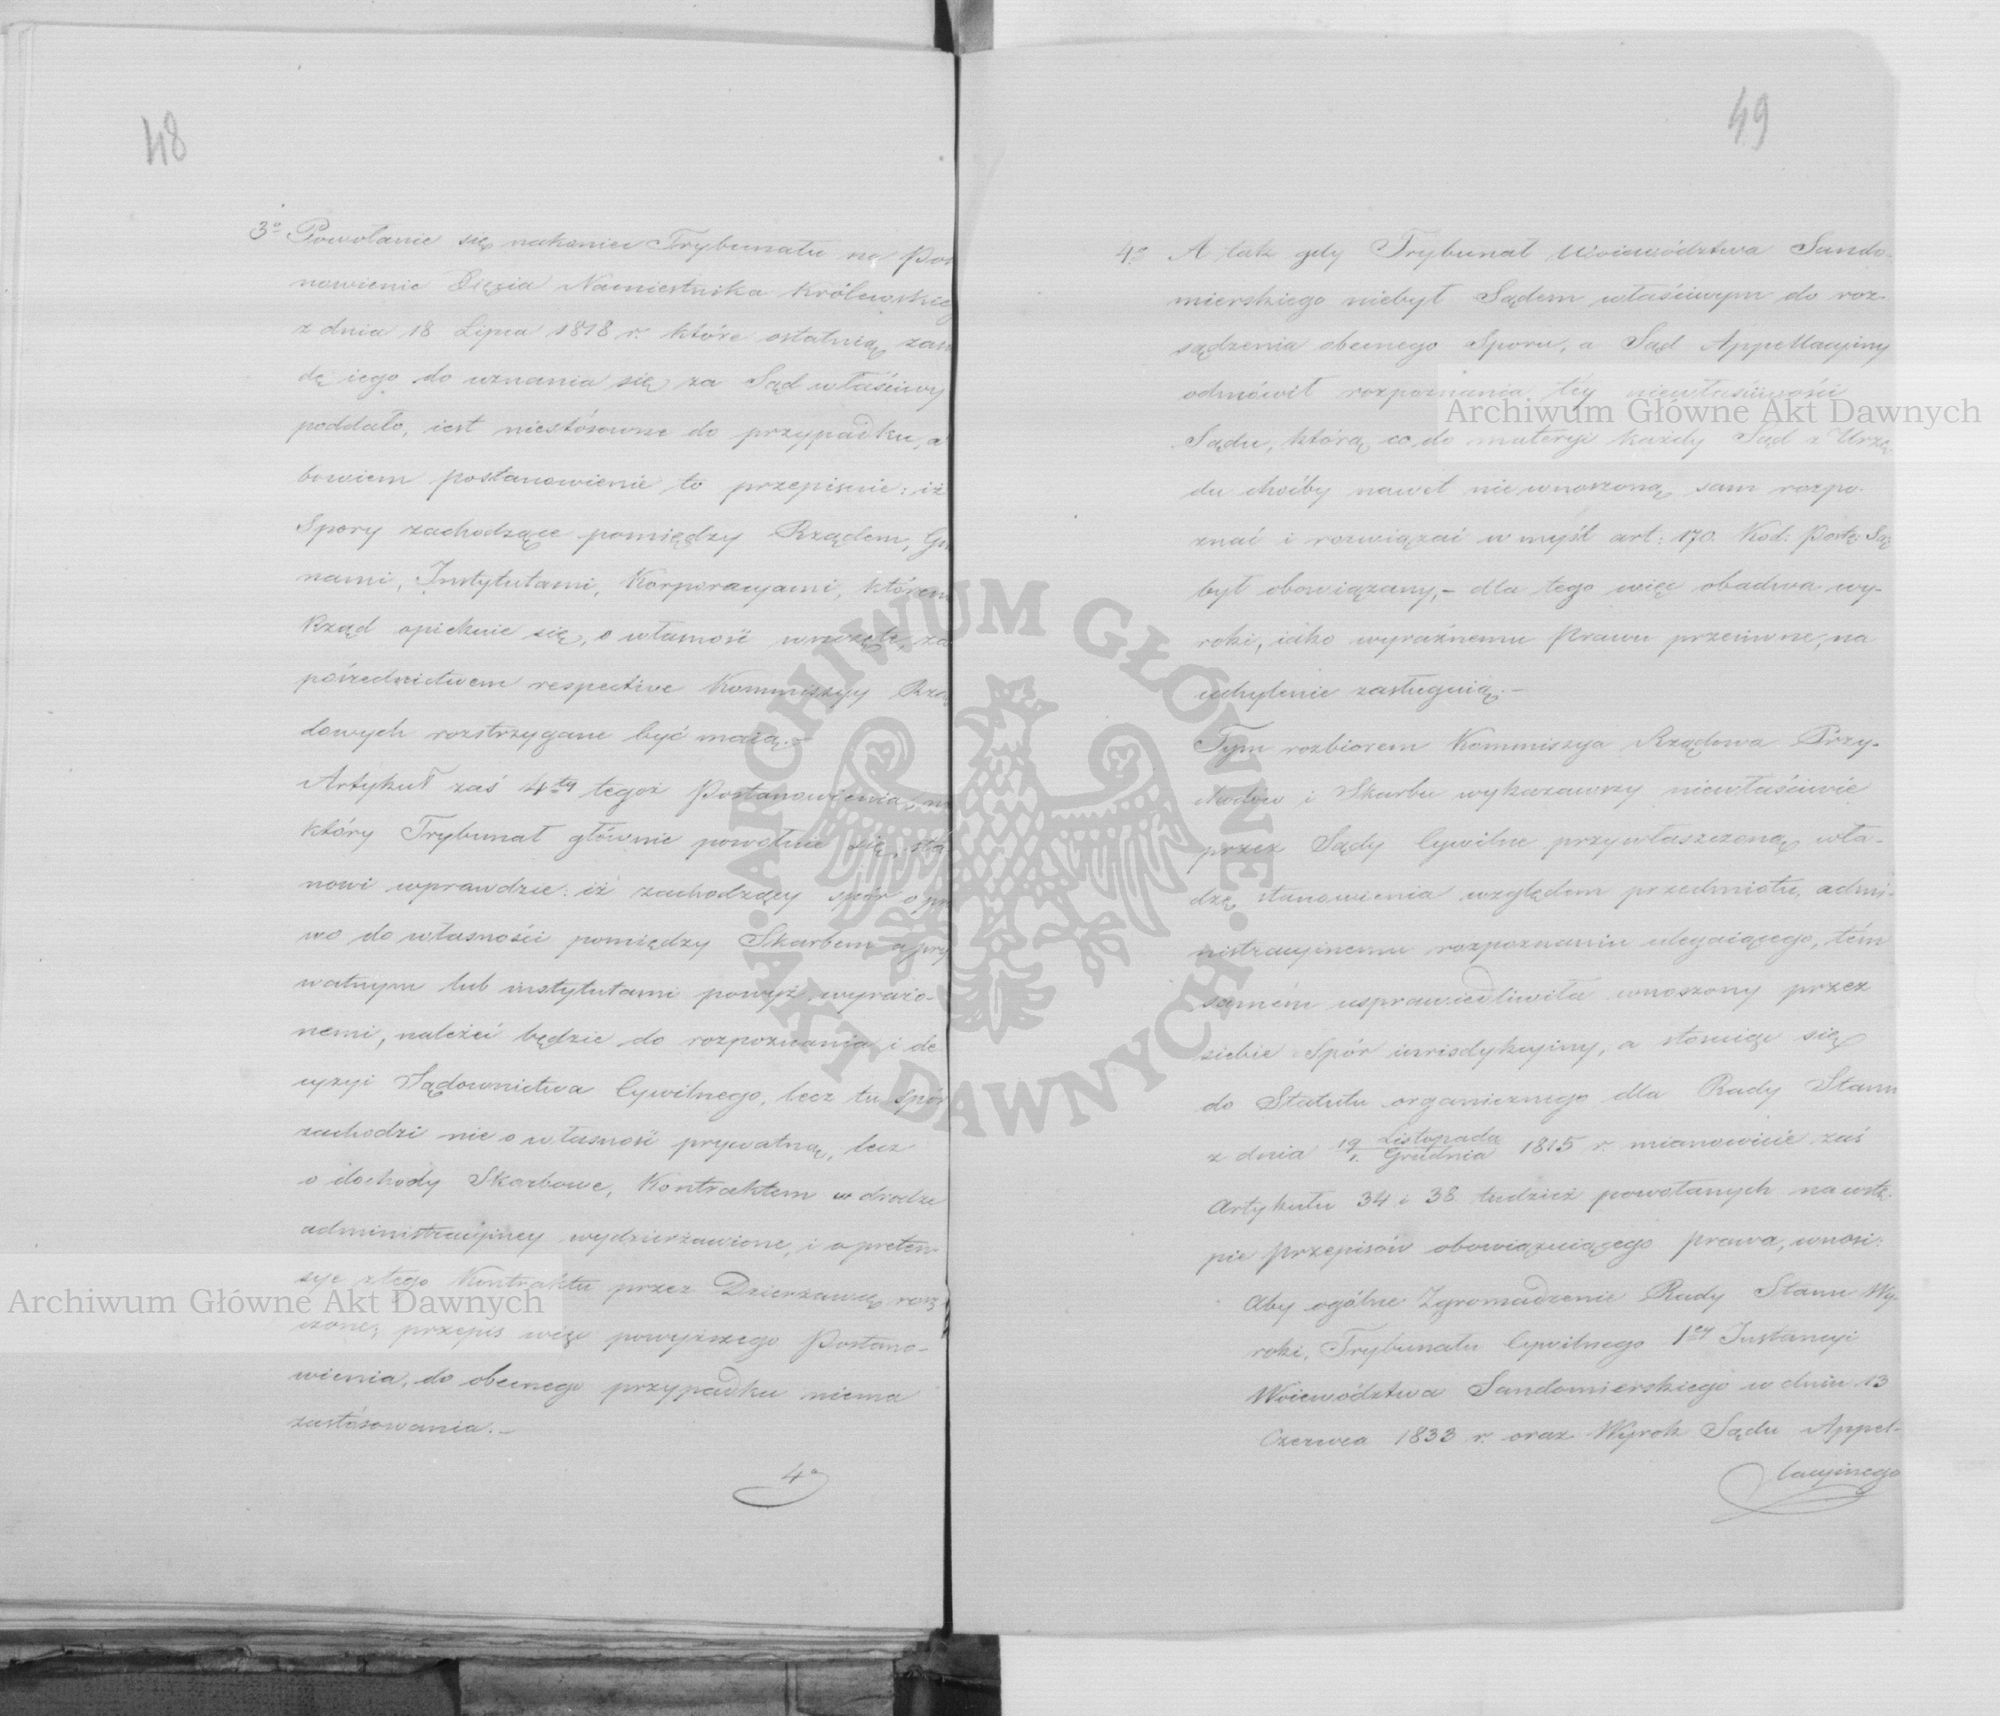 48
3o Powołanie się nakoniec Trybunału na Pos
nowienie Xięcia Namiestnika Królewskieg
z dnia 18 Lipca 1818 r. które ostatnią zas
dę iego do uznania się za Sąd właściwy
poddało, iest niestósowne do przypadku, a
bowiem postanowienie to przepisuie: iż
Spory zachodzące pomiędzy Rządem, Gm
nami, Instytutami, Korporacyami, którem
Rząd opiekuie się, o własność wszczęte, za
pośrednictwem respective Kommissyy Rzą
dowych rozstrzygane być maią.-
Artykuł zaś 4ty tegoż Postanowienia, na
który Trybunał głównie powołuie się, sta
nowi wprawdzie: iż zachodzący spór o pra
wo do własności pomiędzy Skarbem a pry
watnym lub instytutami powyż wyrażo-
nemi, należeć będzie do rozpoznania i de
cyzyi Sądownictwa Cywilnego, lecz tu spór
zachodzi nie o własność prywatną, lecz
o dochody Skarbowe, Kontraktem w drodze
administracyiney wydzierżawione, i o preten-
sye z tego Kontraktu przez Dzierżawcę rosz
czone; przepis więc powyższego Postano-
wienia, do obecnego przypadku niema
zastósowania.-
4o
49
4o A tak gdy Trybunał Woiewództwa Sando-
mierskiego niebył Sądem właściwym do roz-
sądzenia obecnego Sporu, a Sąd Appellacyiny
odmówił rozpoznania tey niewłaściwości
Sądu, którą co do materyi każdy Sąd z Urzę
du choćby nawet nie wnoszoną sam rozpo-
znać i rozwiązać w myśl art: 170. Kod: Postę: Są:
był obowiązany,- dla tego więc obadwa wy-
roki, iako wyraźnemu Prawu przeciwne, na
uchylenie zasługuią.-
Tym rozbiorem Kommissya Rządowa Przy-
chodów i Skarbu wykazawszy niewłaściwie
przez Sądy Cywilne przywłaszczoną wła-
dzę stanowienia względem przedmiotu, admi-
nistracyinemu rozpoznaniu ulegaiącego, tém
samém usprawiedliwiła wnoszony przez
siebie Spór iurisdykcyiny, a stosuiąc się
do Statutu organicznego dla Rady Stanu
z dnia 19 Listopada / 1. Grudnia 1815 r. mianowicie zaś
Artykułu 34 i 38 tudzież powołanych na wstę-
pie przepisów obowiązuiącego prawa, wnosi:
Aby ogólne Zgromadzenie Rady Stanu Wy-
roki, Trybunału Cywilnego 1ey Instancyi
Woiewództwa Sandomierskiego w dniu 13
Czerwca 1833 r. oraz Wyrok Sądu Appel-
lacyinego
Archiwum Główne Akt Dawnych
Archiwum Główne Akt Dawnych
ARCHIWUM GŁÓWNE AKT DAWNYCH